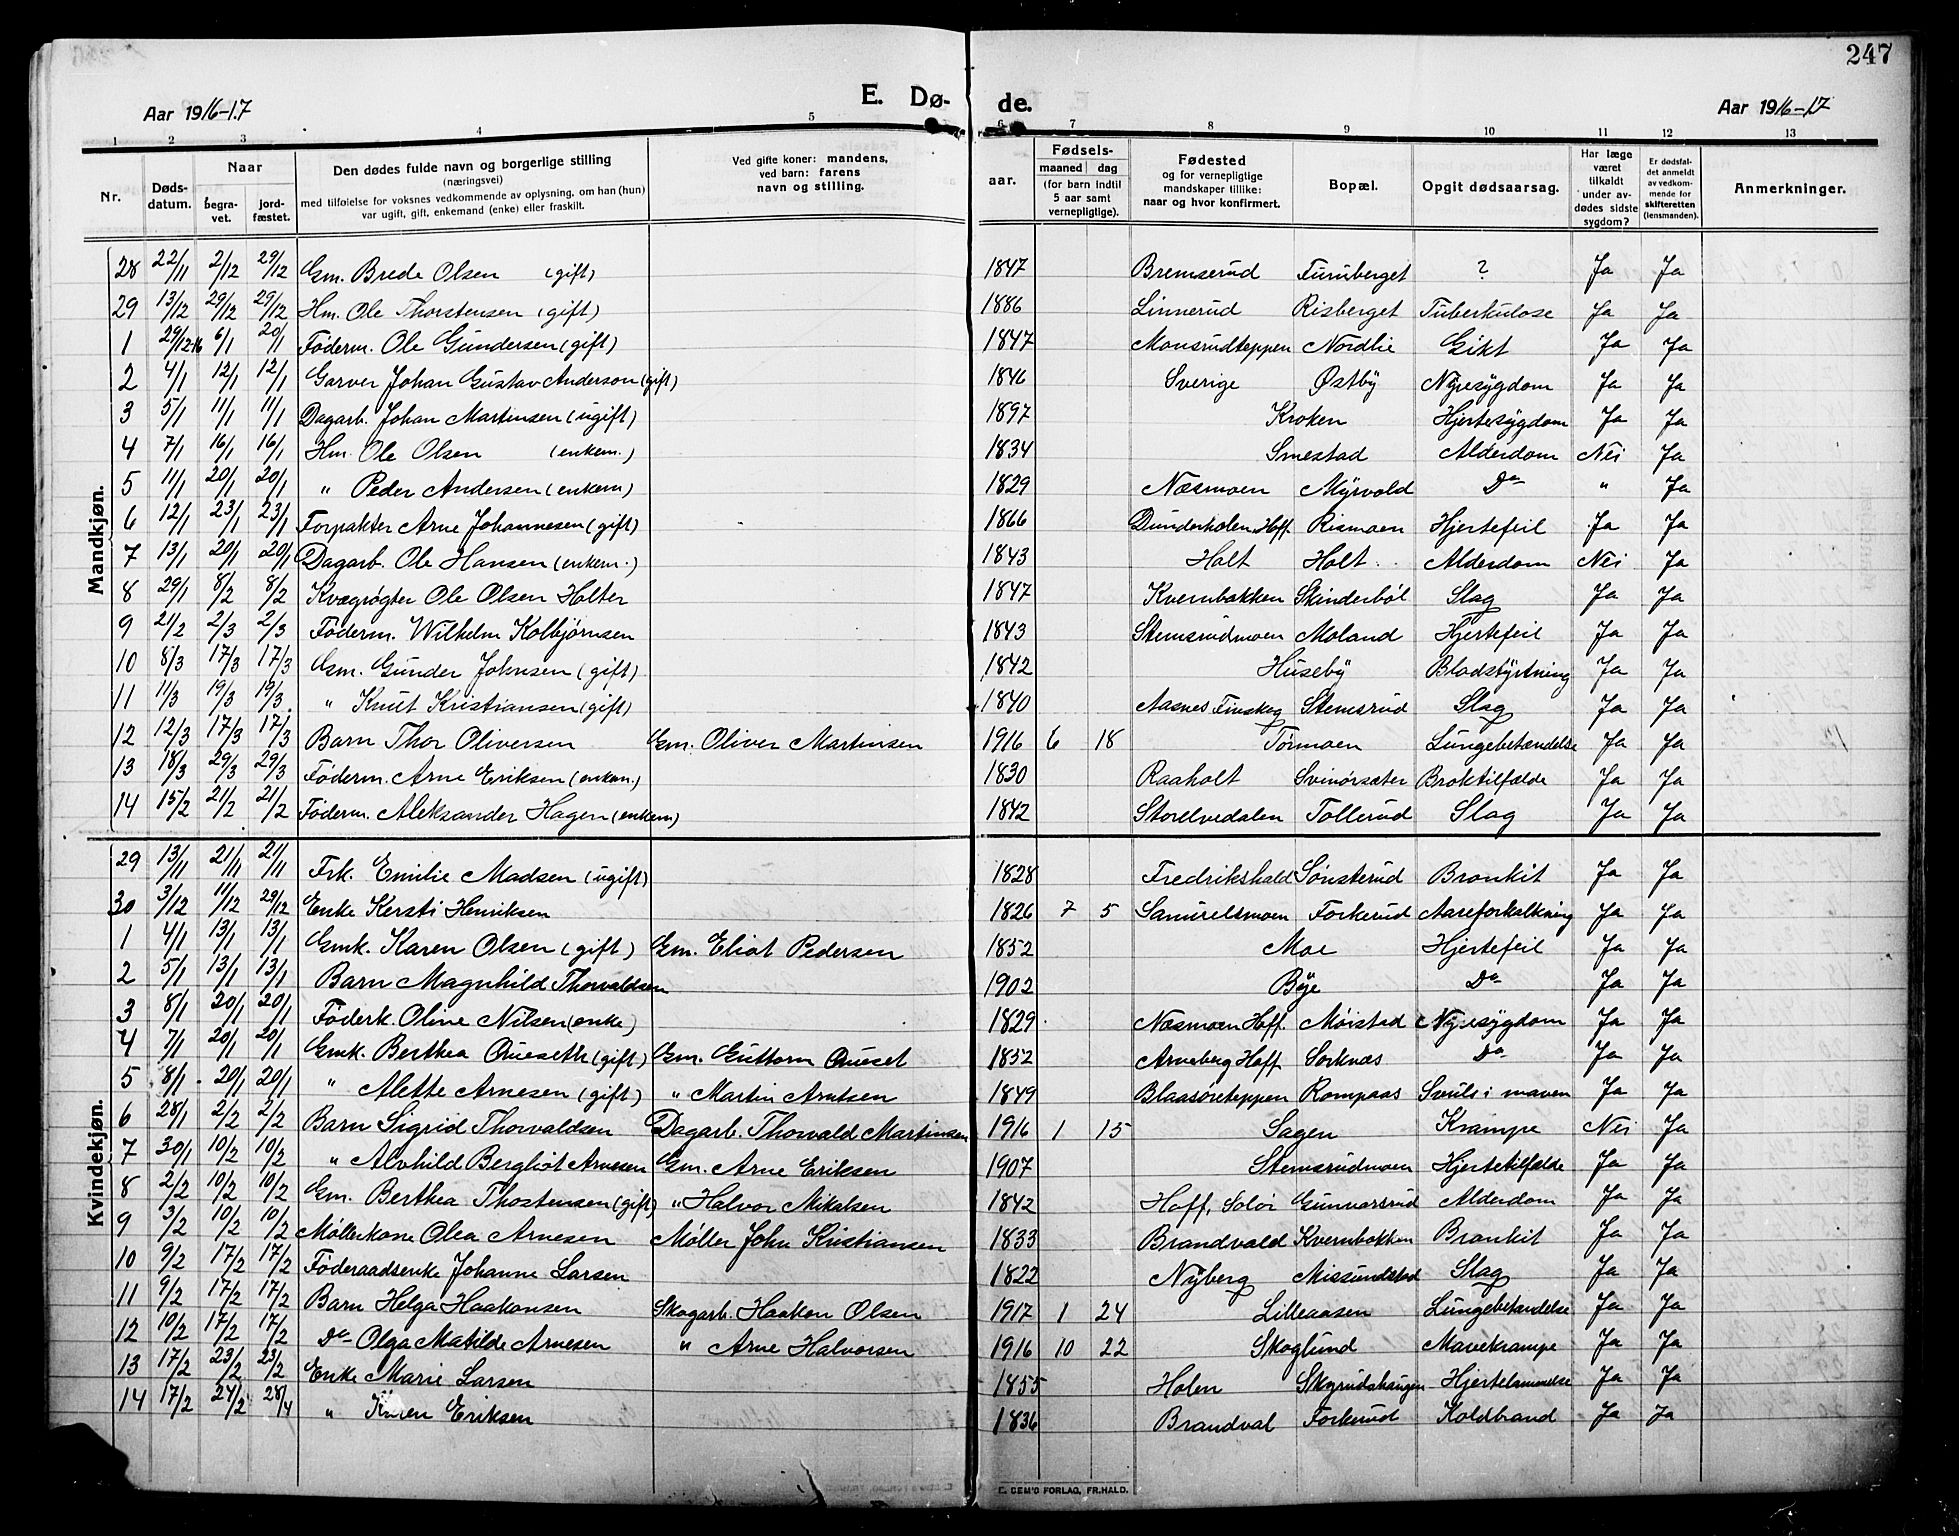 247
Aar 1916-17 E. Dø- de. Aar 1916-17
1 2 3 4 5 6 7 8 9 10 11 12 13
Nr. Døds-datum. Naar begra-vet. jord-fæstet. Den dødes fulde navn og borgerlige stilling (næringsvei) med tilføielse for voksnes vedkommende av oplysning, om han (hun) var ugift, gift, enkemand (enke) eller fraskilt. Ved gifte koner: mandens, ved barn: farens navn og stilling. aar. Fødsels- maaned dag (for barn indtil 5 aar samt vernepligtige). Fødested og for vernepligtige mandskaper tillike: naar og hvor konfirmert. Bopæl. Opgit dødsaarsag. Har læge været tilkaldt under av-dødes sidste sygdom? Er dødsfal-det anmeldt av vedkom-mende for skifteretten (lensmanden). Anmerkninger.
Mandkjøn.
28 22/11 2/12 29/12 Gm. Brede Olsen (gift) 1847 Bremserud Furuberget ? Ja Ja
29 13/12 29/12 29/12 Hm. Ole Thorstensen (gift) 1886 Linnerud Risberget Tuberkulose Ja Ja
1 29/12-16 6/1 20/1 Föderm. Ole Gundersen (gift) 1847 Monsrudteppen Nordlie Gikt Ja Ja
2 4/1 12/1 12/1 Garver Johan Gustav Anderson (gift) 1846 Sverige Østby Nyresygdom Ja Ja
3 5/1 11/1 11/1 Dagarb. Johan Martinsen (ugift) 1897 Kroken Hjertesygdom Ja Ja
4 7/1 16/1 16/1 Hm. Ole Olsen (enkem.) 1834 Smestad Alderdom Nei Ja
5 11/1 20/1 20/1 " Peder Andersen (enkem) 1829 Næsmoen Myrvold Do " Ja
6 12/1 23/1 23/1 Forpakter Arne Johannesen (gift) 1866 Dunderholen, Hoff. Rismoen Hjertefeil Ja Ja
7 13/1 20/1 20/1 Dagarb. Ole Hansen (enkem.) 1843 Holt Holt Alderdom Nei Ja
8 29/1 8/2 8/2 Kvægrøgter Ole Olsen Holter 1847 Kvernbakken Skinderböl Slag Ja Ja
9 21/2 2/3 2/3 Föderm. Wilhelm Kolbjørnsen 1843 Stemsrudmoen Moland Hjertefeil Ja Ja
10 8/3 17/3 17/3 Gm. Gunder Johnsen (gift) 1842 Huseby Blodstyrtning Ja Ja
11 11/3 19/3 19/3 " Knut Kristiansen (gift) 1840 Aasnes Finskog Stemsrud Slag Ja Ja
12 12/3 17/3 17/3 Barn Thor Oliversen Gm. Oliver Martinsen 1916 6 18 Tørmoen Lungebetændelse Ja Ja
13 18/3 29/3 29/3 Føderm. Arne Eriksen (enkem.) 1830 Raaholt Svinörsæter Broktilfælde Ja Ja
14 15/2 21/2 21/2 Föderm. Aleksander Hagen (enkem) 1842 Storelvedalen Tollerud Slag Ja Ja
Kvindekjøn.
29 13/11 21/11 21/11 Frk. Emilie Madsen (ugift) 1828 Fredrikshald Sønsterud Bronkit Ja Ja
30 3/12 11/12 29/12 Enke Kersti Henriksen 1826 7 5 Samuelsmoen Forkerud Aareforkalkning Ja Ja
1 4/1 13/1 13/1 Gmk. Karen Olsen (gift) Gm. Eliot Pedersen 1852 Moe Hjertefeil Ja Ja
2 5/1 13/1 13/1 Barn Magnhild Thorvaldsen 1902 Bye Do Ja Ja
3 8/1 20/1 20/1 Föderk. Oline Nilsen (enke) 1829 Næsmoen Hoff. Møistad Nyresygdom Ja Ja
4 7/1 20/1 20/1 Gmk. Berthea Queseth (gift) Gm. Guttorm Queset 1852 Arneberg Hoff Sorknæs Do Ja Ja
5 8/1 20/1 20/1 " Alette Arnesen (gift) " Martin Arntsen 1849 Blaasöreteppen Rompaas Svuls i maven Ja Ja
6 28/1 2/2 2/2 Barn Sigrid Thorvaldsen Dagarb. Thorvald Martinsen 1916 1 15 Sagen Krampe Nei Ja
7 30/1 10/2 10/2 " Alvhild Bergliot Arnesen Gm. Arne Eriksen 1907 Stemsrudmoen Hjertetilfælde Ja Ja
8 2/2 10/2 10/2 Gm. Berthea Thostensen (gift) " Halvor Mikalsen 1842 Hoff, Solør Gunnarsrud Alderdom Ja Ja
9 3/2 10/2 10/2 Møllerkone Olea Arnesen Møller John Kristiansen 1833 Brandvald Kvernbakken Bronkit Ja Ja
10 9/2 17/2 17/2 Föderaadsenke Johanne Larsen 1822 Nyberg Missundstad Slag Ja Ja
11 9/2 17/2 17/2 Barn Helga Haakonsen Skogarb. Haakon Olsen 1917 1 24 Lilleaasen Lungebetændelse Ja Ja
12 10/2 17/2 17/2 Do Olga Matilde Arnesen " Arne Halvorsen 1916 10 22 Skoglund Mavekrampe Ja Ja
13 17/2 23/2 23/2 Enke Marie Larsen 1855 Holen Skyrudshaugen Hjertelammelse Ja Ja
14 17/2 24/2 28/4 " Karen Eriksen 1836 Brandval Forkerud Koldbrand Ja Ja
E. SEM'S FORLAG, FR.HALD.